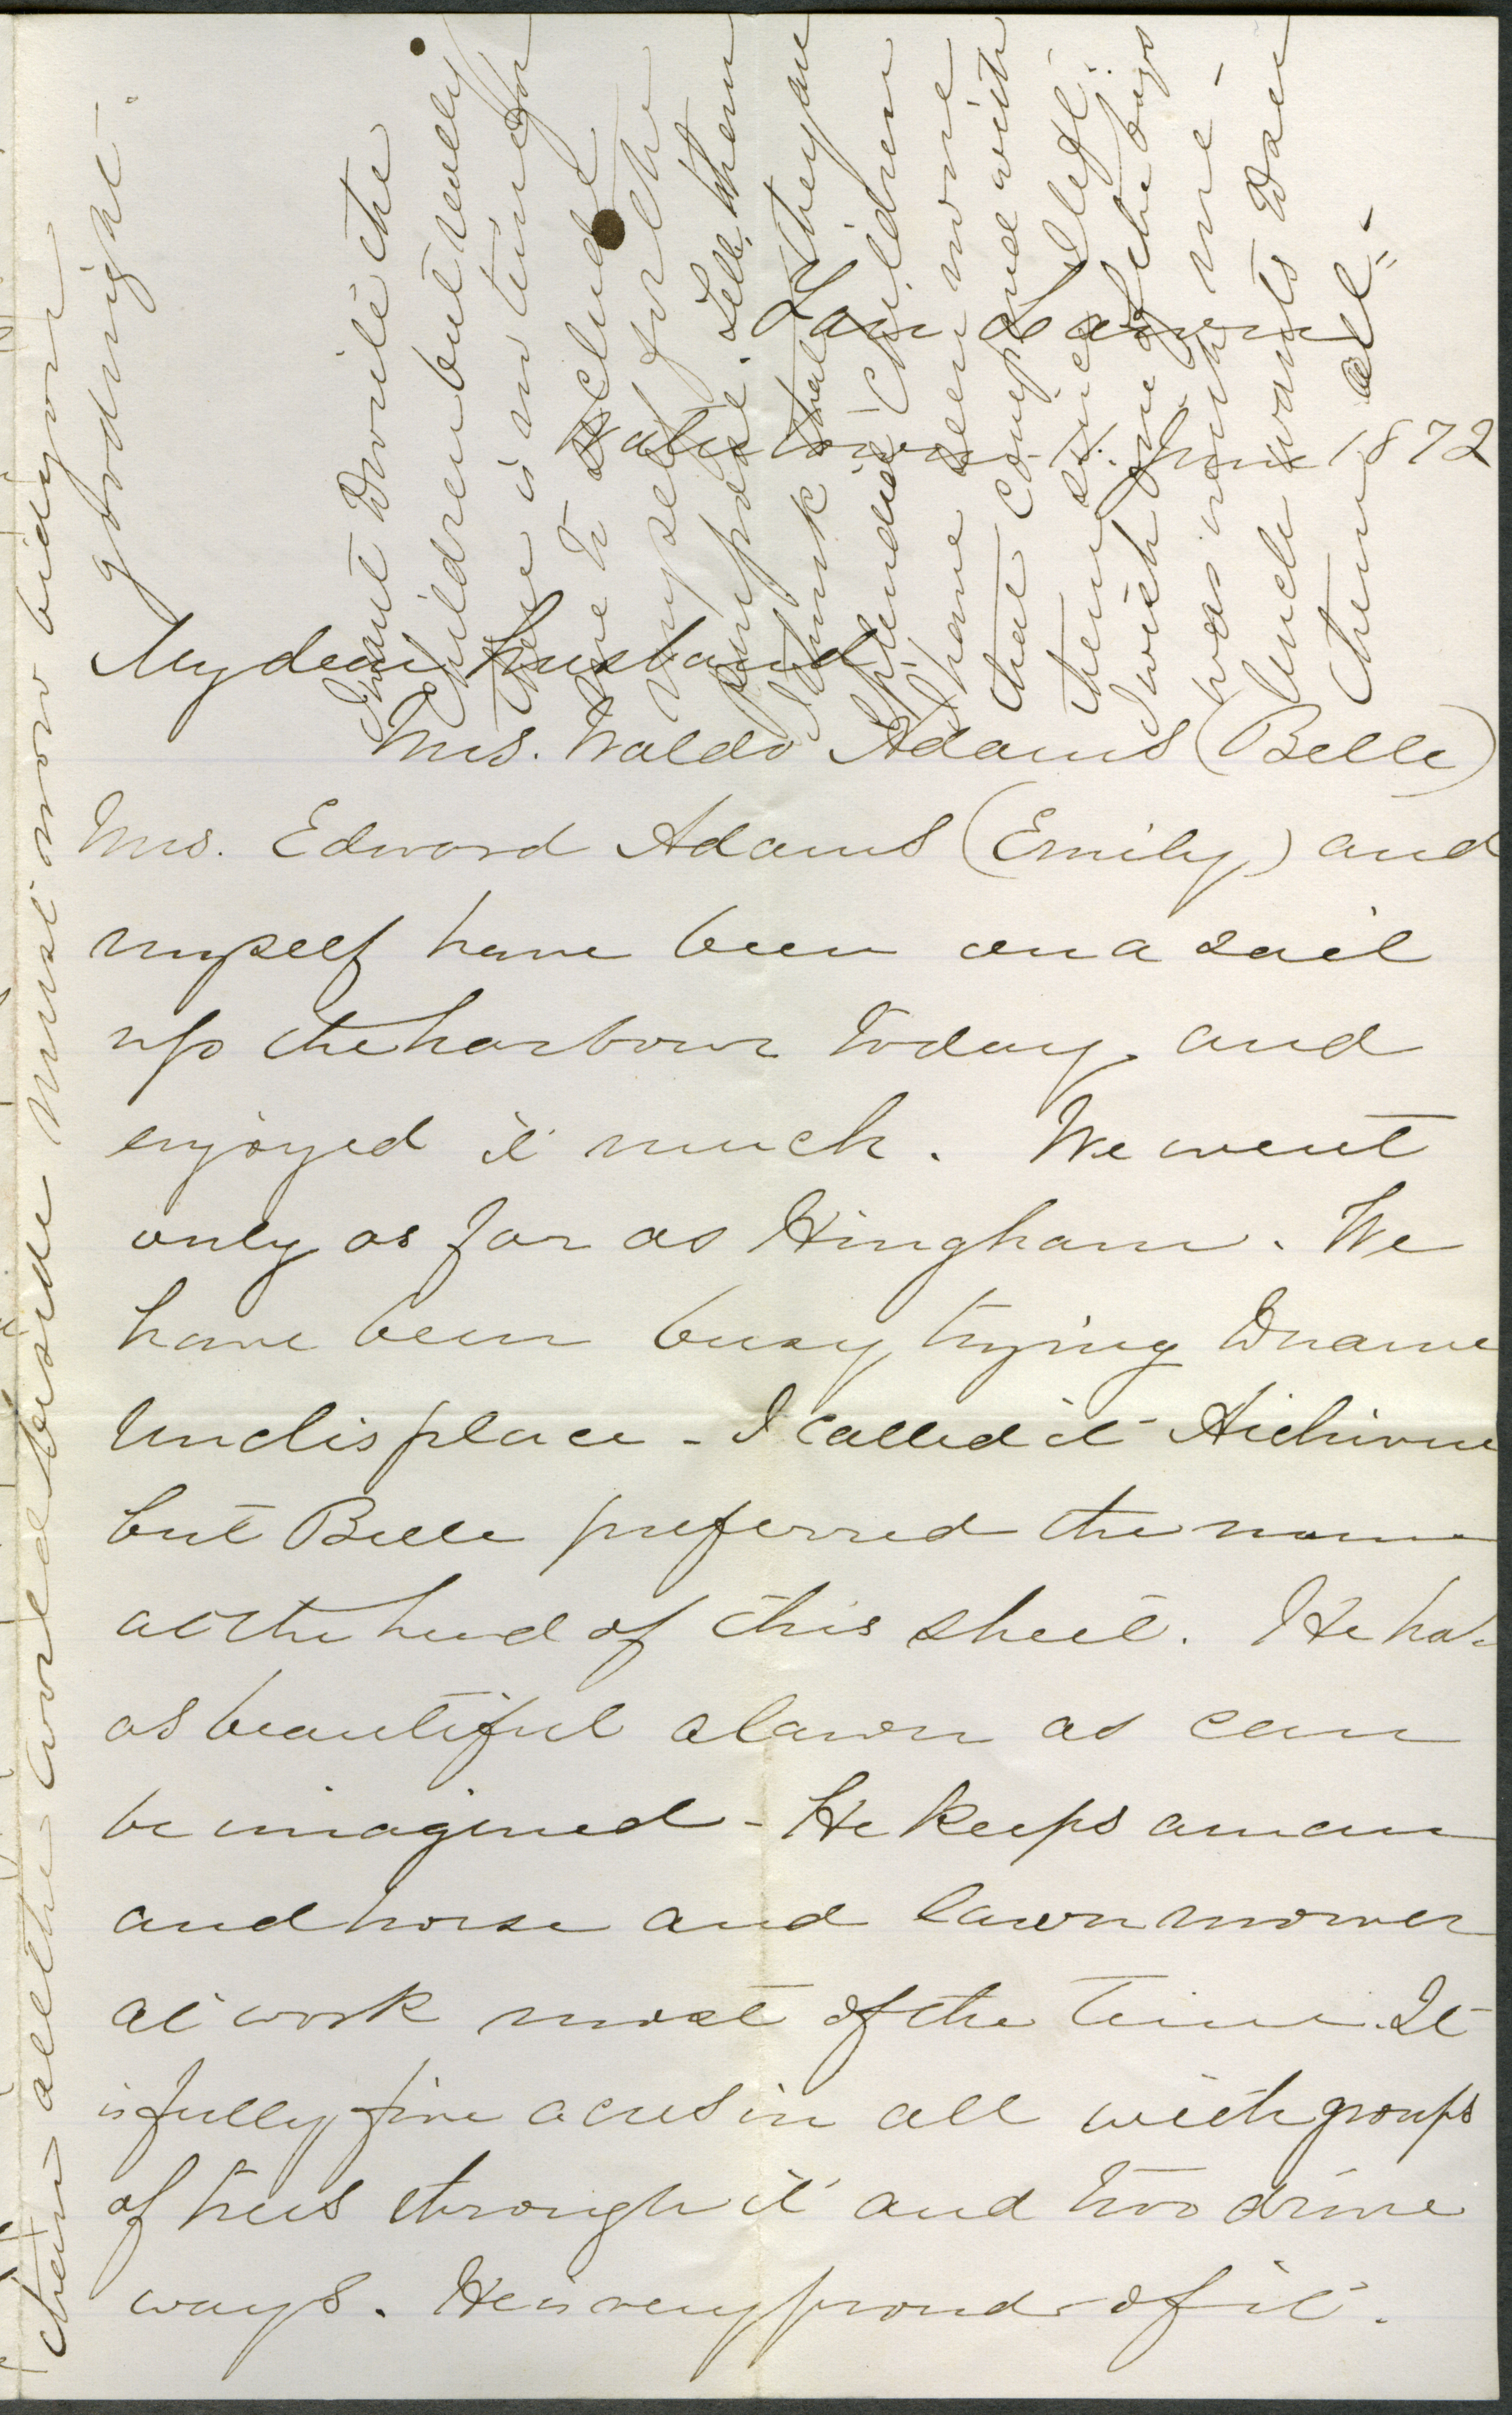 Fair Lawn
Watertown 11. June 1872
My dear husband
Mrs. Waldo Adams (Belle)
Mrs. Edward Adams (Emily) and
myself have been on a sail
up the harbour today, and
enjoyed it much. We went
only as far as Hingham. We
have been busy trying to name
Uncle's place - I called it
but Belle preferred the name
at the head of this sheet. He has
as beautiful a lawn as can
be imagined - He keeps a man
and horse and lawn mower
at work most of the time. It
is fully five acres in all with groups
of trees through it and two drive
ways. He is very proud of it.
I want to write the
children but really
there is no time for
me to seclude
myself for the
purpose. Tell them
I think that they are
splendid children
I have seen none
that compare with
them since I left.
I wish one of the boys
was with me -
Uncle wants to see
them all" -
than all the world beside must now bid you
goodnight -